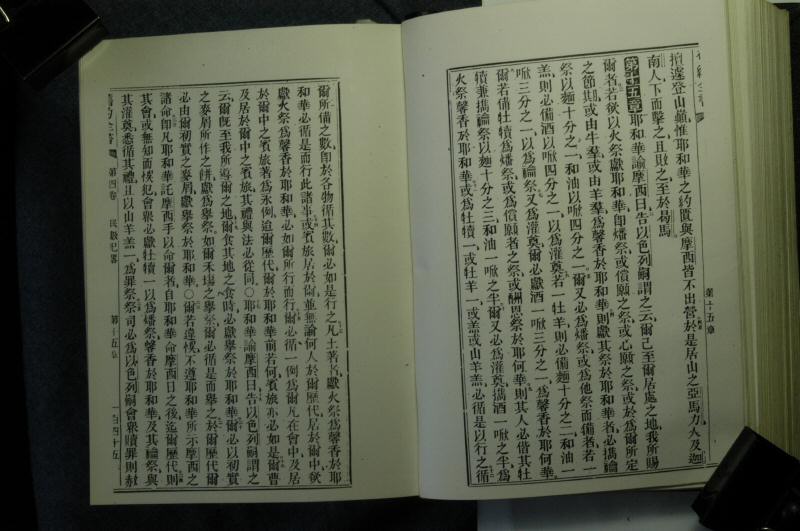 擅遽登山巔惟耶和華之約匱與摩西皆不出營於是居山之亞馬力人及迦
南人下而擊之且敗之至於曷馬
第十五章耶和華諭摩西曰告以色列嗣謂之云爾已至爾居處之地我所賜
爾者若欲以火祭獻耶和華卽燔祭或償願之祭或心願之祭或於爲爾所定
之節其或由牛羣或由羊羣爲馨香於耶和華則獻其祭於耶和華者必攜論
祭以麵十分之一和油以㗀四分之一爾又必爲燔祭或爲他祭而備者若一
羔則必備酒以㗀四分之一以爲灌奠若一牡羊則必備麵十分之二和油一
㗀三分之一以爲論祭又爲灌奠爾必獻酒一㗀三分之一爲馨香於耶何華
爾若備牡犢爲燔祭或爲償願者之祭或酬恩祭於耶何華則其人必偕其牡
犢兼攜論祭以麵十分之三和油一㗀之半爾又必爲灌奠攜酒一㗀之半爲
火祭馨香於耶和華或爲牡犢一或牡羊一或羔或山羊羔必循是以行之循
第十五章
爾所備之數卽於各物循其數爾必如是行之凡土著者獻火祭爲馨香於耶
和華必循是而行此諸事或賓旅居於爾並無論何人於爾歷代居於爾中欲
獻火祭爲馨香於耶和華必如爾所行而行爾必循一例爲爾凡在會中及居
於爾中之賓旅著爲永例迨爾歷代爾於耶和華前若何賓旅亦必如是爾曹
及居於爾中之賓旅其禮與法必從同○耶和華諭摩西曰告以色列嗣謂之
云爾旣至我所導爾之地爾食其地之食時必獻舉祭於耶和華爾必以初實
之麥屑所作之餅獻爲舉祭如爾禾場之舉祭爾必循是而舉之於爾歷代爾
必由爾初實之麥屑獻舉祭於耶和華○爾若違悞不遵耶和華所示摩西之
諸命卽凡耶和華託摩西手以命爾者自耶和華命摩西曰之後迄爾歷代則
其會或無知而悞犯會衆必獻牡犢一以爲燔祭馨香於耶和華及其論祭與
其灌奠悉循其禮且以山羊羔一爲罪祭祭司必爲以色列嗣會衆贖罪則赦
舊約全書
第四卷 民數紀畧 第十五章 一百四十五